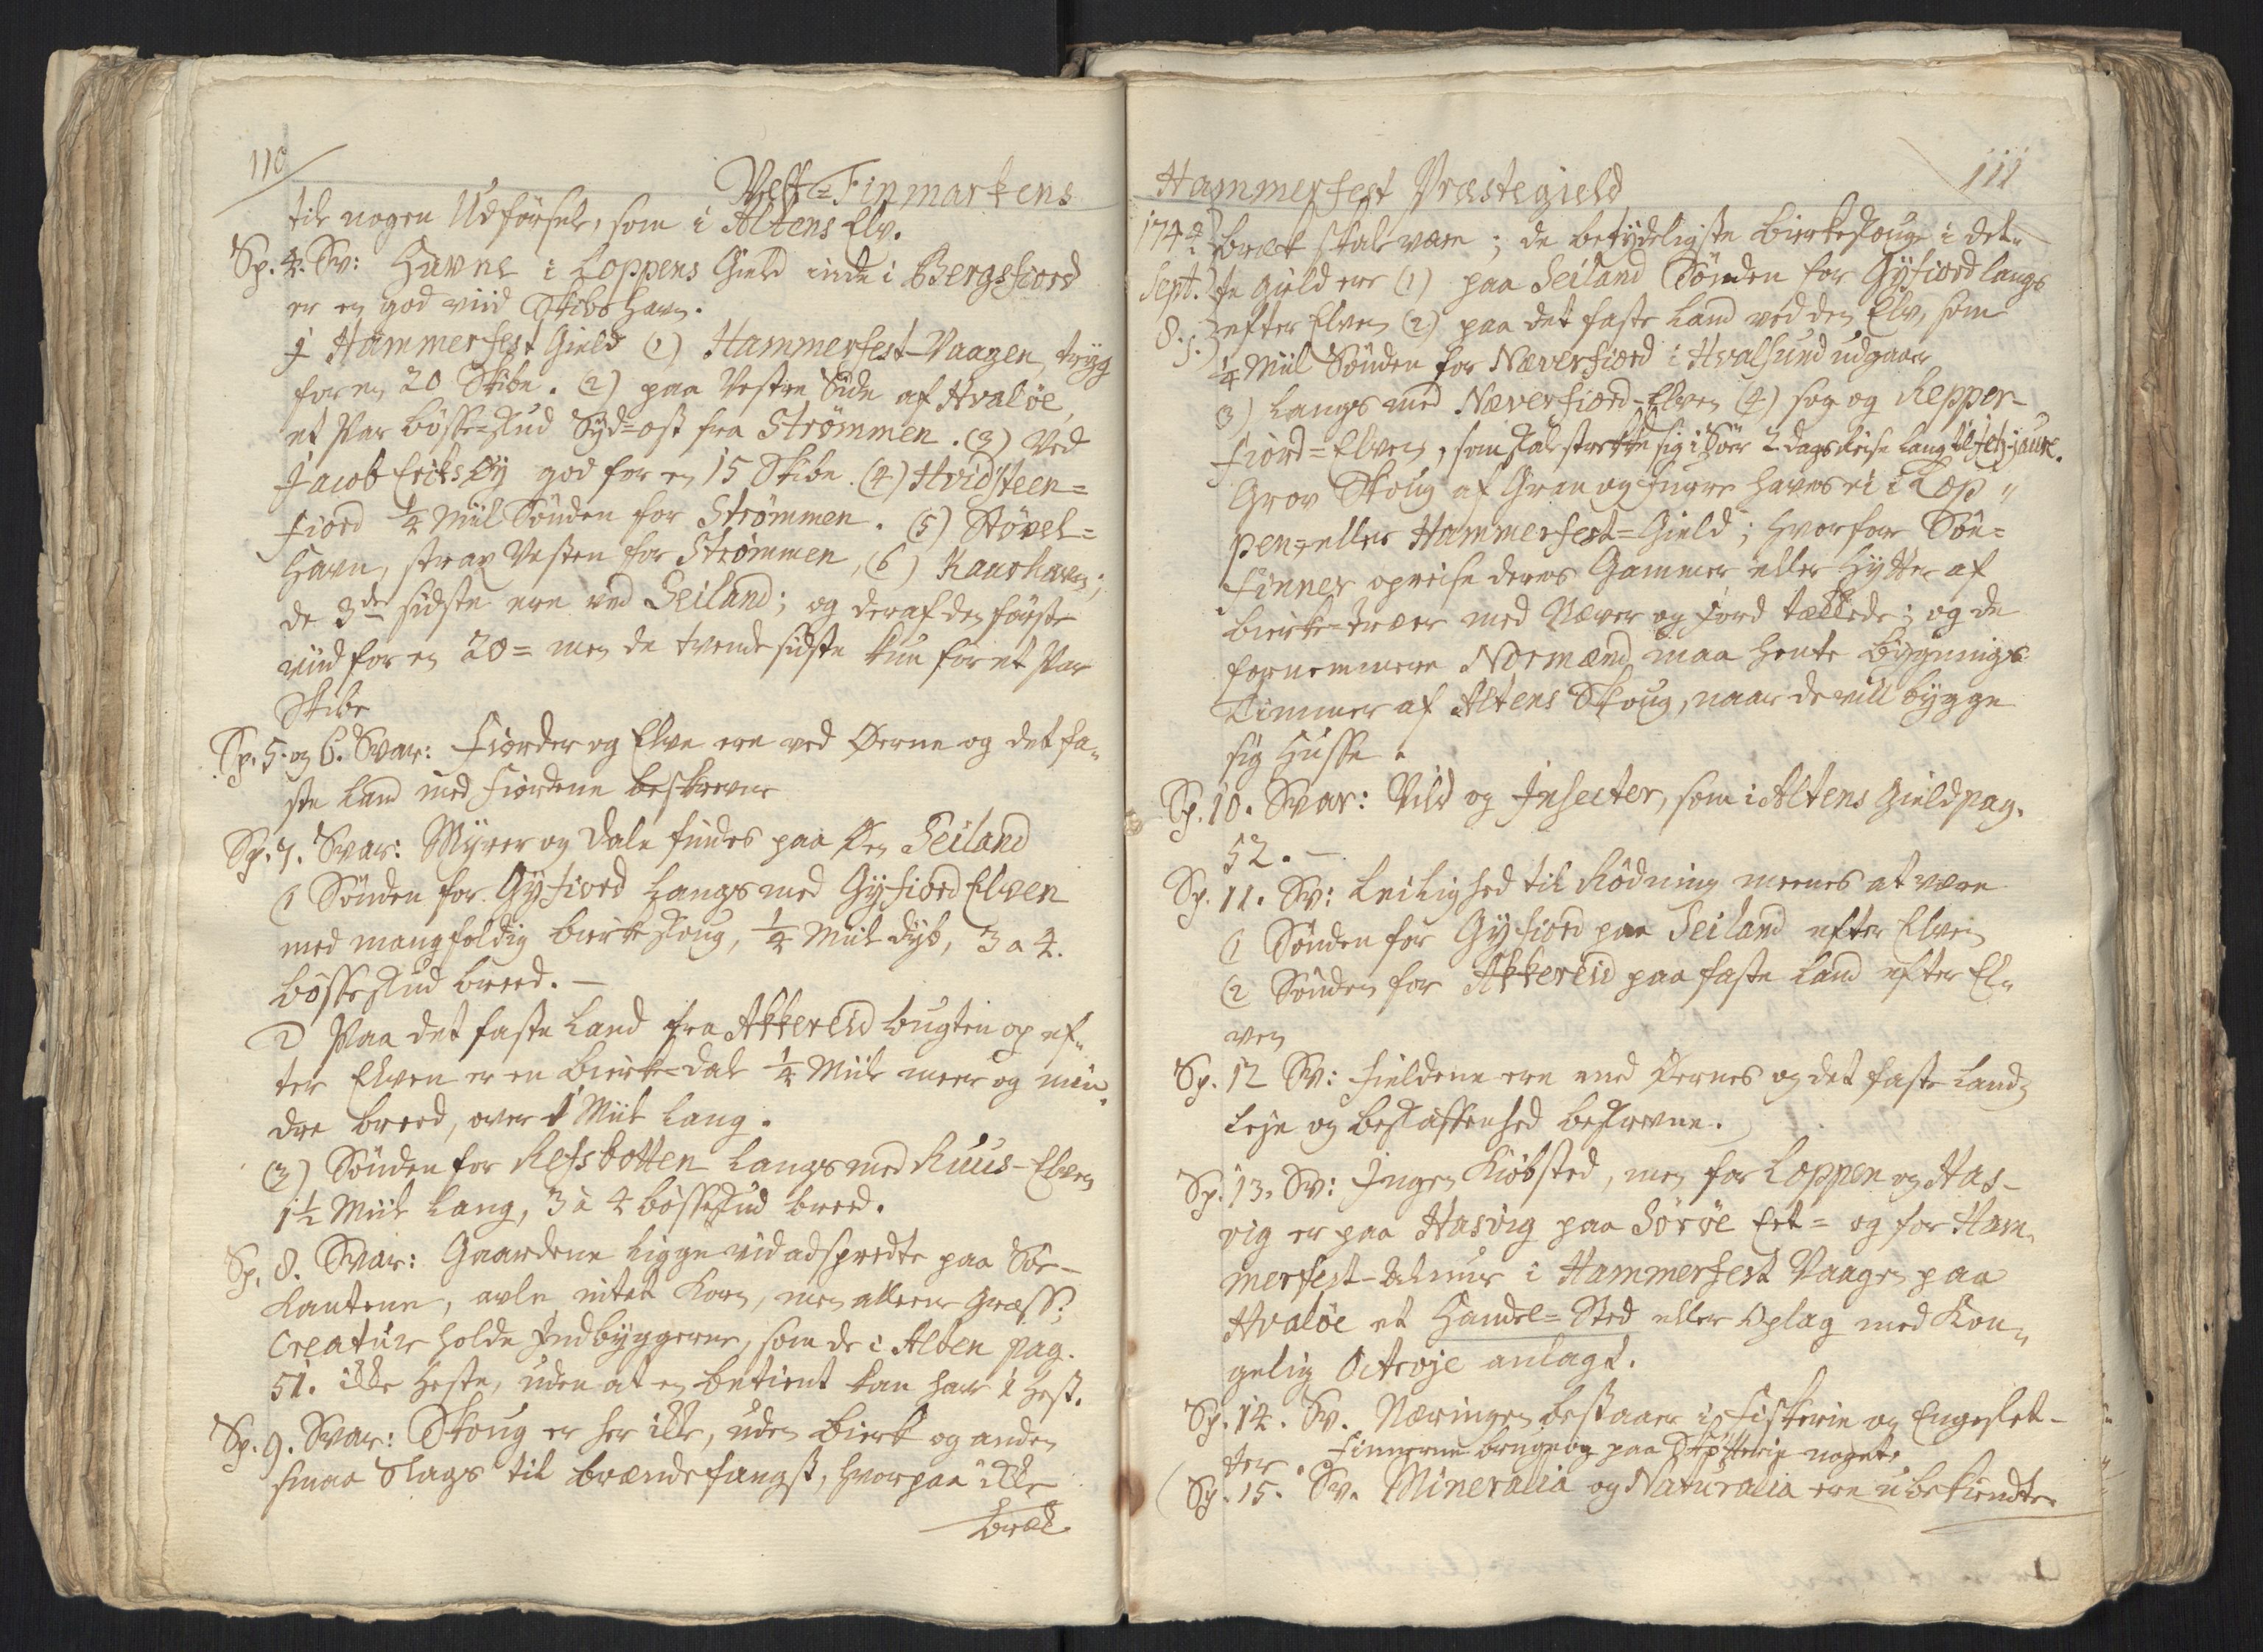 110
Vest=Finmarkens
til nogen Udførsel, som i Altens Elv.
Sp. 4. Sv: Havne i Loppens Gield inde i Bergsfiord
er en god viid Skibs Havn.
I Hammerfest Gield (1) Hammerfest-Vaagen, trygg
for en 20 Skibe. (2) paa Vestre Side af Hvaløe,
et Par bøsse-skud Syd-ost fra Strømmen. (3) Ved
Jacob Eriks Øy god for en 15 Skibe. (4) Hvidsteen=
fiord ¼ Miil Sønden for Strømmen. (5) Støvel=
Havn, strax Vesten for Strømmen, (6) Kaushavn;
de 3de sidste ere ved Seiland; og deraf den første
viid for en 20= men de tvende sidste kun for et Par
Skibe
Sp. 5. og 6. Svar: Fiorder og Elve ere ved Øerne og det fa-
ste Land med Fiordene beskrevne
Sp. 7. Svar: Myrer og Dale findes paa Øen Seiland
(1 Sønden for Gyfiord Langs med Gyfiord Elven
med mangfoldig birkeskoug, ¼ Miil dyb, 3 a 4.
bøsseskud breed. —
2) Paa det faste Land fra Akkereid bugten op ef-
ter Elven er en Bierke-dal ¼ Miil meer og min-
dre breed, over 1 Miil lang.
(3) Sønden for Refsbotten Langs med Ruus-Elven
1½ Miil lang, 3 à 4 bøsseskud breed.
Sp. 8. Svar: Gaardene ligge vid adspredte paa Søe-
Kanterne, avle intet Korn, men alleene Græss;
Creature holde Indbyggerne, som de i Alten pag.
51. ikke Heste, uden at en betient kan have 1 Hest.
Sp. 9. Svar: Skoug er her ikke, uden Bierk og anden
smaa Slags til brændefangst, hvorpaa ikke
bræk

Hammerfest Præstegield
111
1742 bræk skal være; de betydeligste birkeskouge i det-
Sept. te Gield ere (1) paa Seiland Sønden for Gyfiord langs
8. efter Elven (2) paa det faste Land ved den Elv, som
¼ Miil Sønden for Næverfiord i Hvalsund udgaaer
3) Langs med Næverfiord-Elven (4) sag og Repper-
fiord=Elven, som skal strekke sig i Søer 2 dags Reise lang til
Grov Skoug af Gran og Furre haves ei i Lop-
pen= eller Hammerfest=Gield; hvorfor Søe=
Finner opreise deres Gammer eller Hytter af
bierke-træer med Næver og Jord tækkede; og de
fornemmere Normænd maa hente bygnings
Timmer af Altens Skoug, naar de vill bygge
sig Huse.
Sp. 10. Svar: Vild og Insecter, som i Altens Gield pag.
52. —
Sp. 11. Sv: Leilighed til Rødning meenes at være
(1 Sønden for Gyfiord paa Seiland efter Elven
(2 Sønden for Akkereid paa faste Land efter El-
ven
Sp. 12 Sv: Fieldene ere med Øernes og det faste Lands
Leje og beskaffenhed beskrevne.
Sp. 13. Sv: Ingen Kiøbsted, men for Loppen og Has-
vig er paa Hasvig paa Sørøe Eet= og for Ham-
merfest-Almue i Hammerfest Vaagen paa
Hvaløe et Handel=Sted eller Oplag med Kon-
gelig Octroje anlagt.
Sp. 14. Sv. Næringen bestaaer i Fiskerie og Engeslet-
ter. Finnerne bruge og paa Skytterie noget.
Sp. 15. Sv. Mineralia og Naturalia ere ubekiendte.